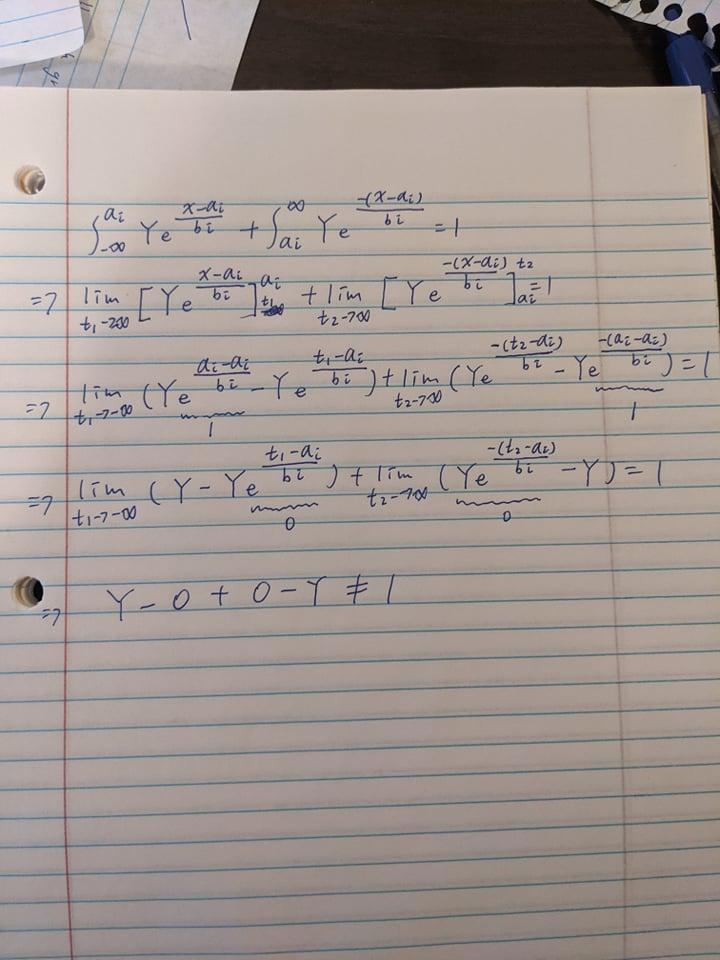 ∫_{-∞}^{a_i} Y e^{\frac{x-a_i}{b_i}} + ∫_{a_i}^{∞} Y e^{\frac{-(x-a_i)}{b_i}} = 1
=> lim_{t_1→-∞} [Y e^{\frac{x-a_i}{b_i}}]_{t_1}^{a_i} + lim_{t_2→∞} [Y e^{\frac{-(x-a_i)}{b_i}}]_{a_i}^{t_2} = 1
=> lim_{t_1→-∞} (Y e^{\frac{a_i-a_i}{b_i}} - Y e^{\frac{t_1-a_i}{b_i}}) + lim_{t_2→∞} (Y e^{\frac{-(t_2-a_i)}{b_i}} - Y e^{\frac{-(a_i-a_i)}{b_i}}) = 1
1 1
=> lim_{t_1→-∞} (Y - Y e^{\frac{t_1-a_i}{b_i}}) + lim_{t_2→∞} (Y e^{\frac{-(t_2-a_i)}{b_i}} - Y) = 1
0 0
=> Y - 0 + 0 - Y ≠ 1